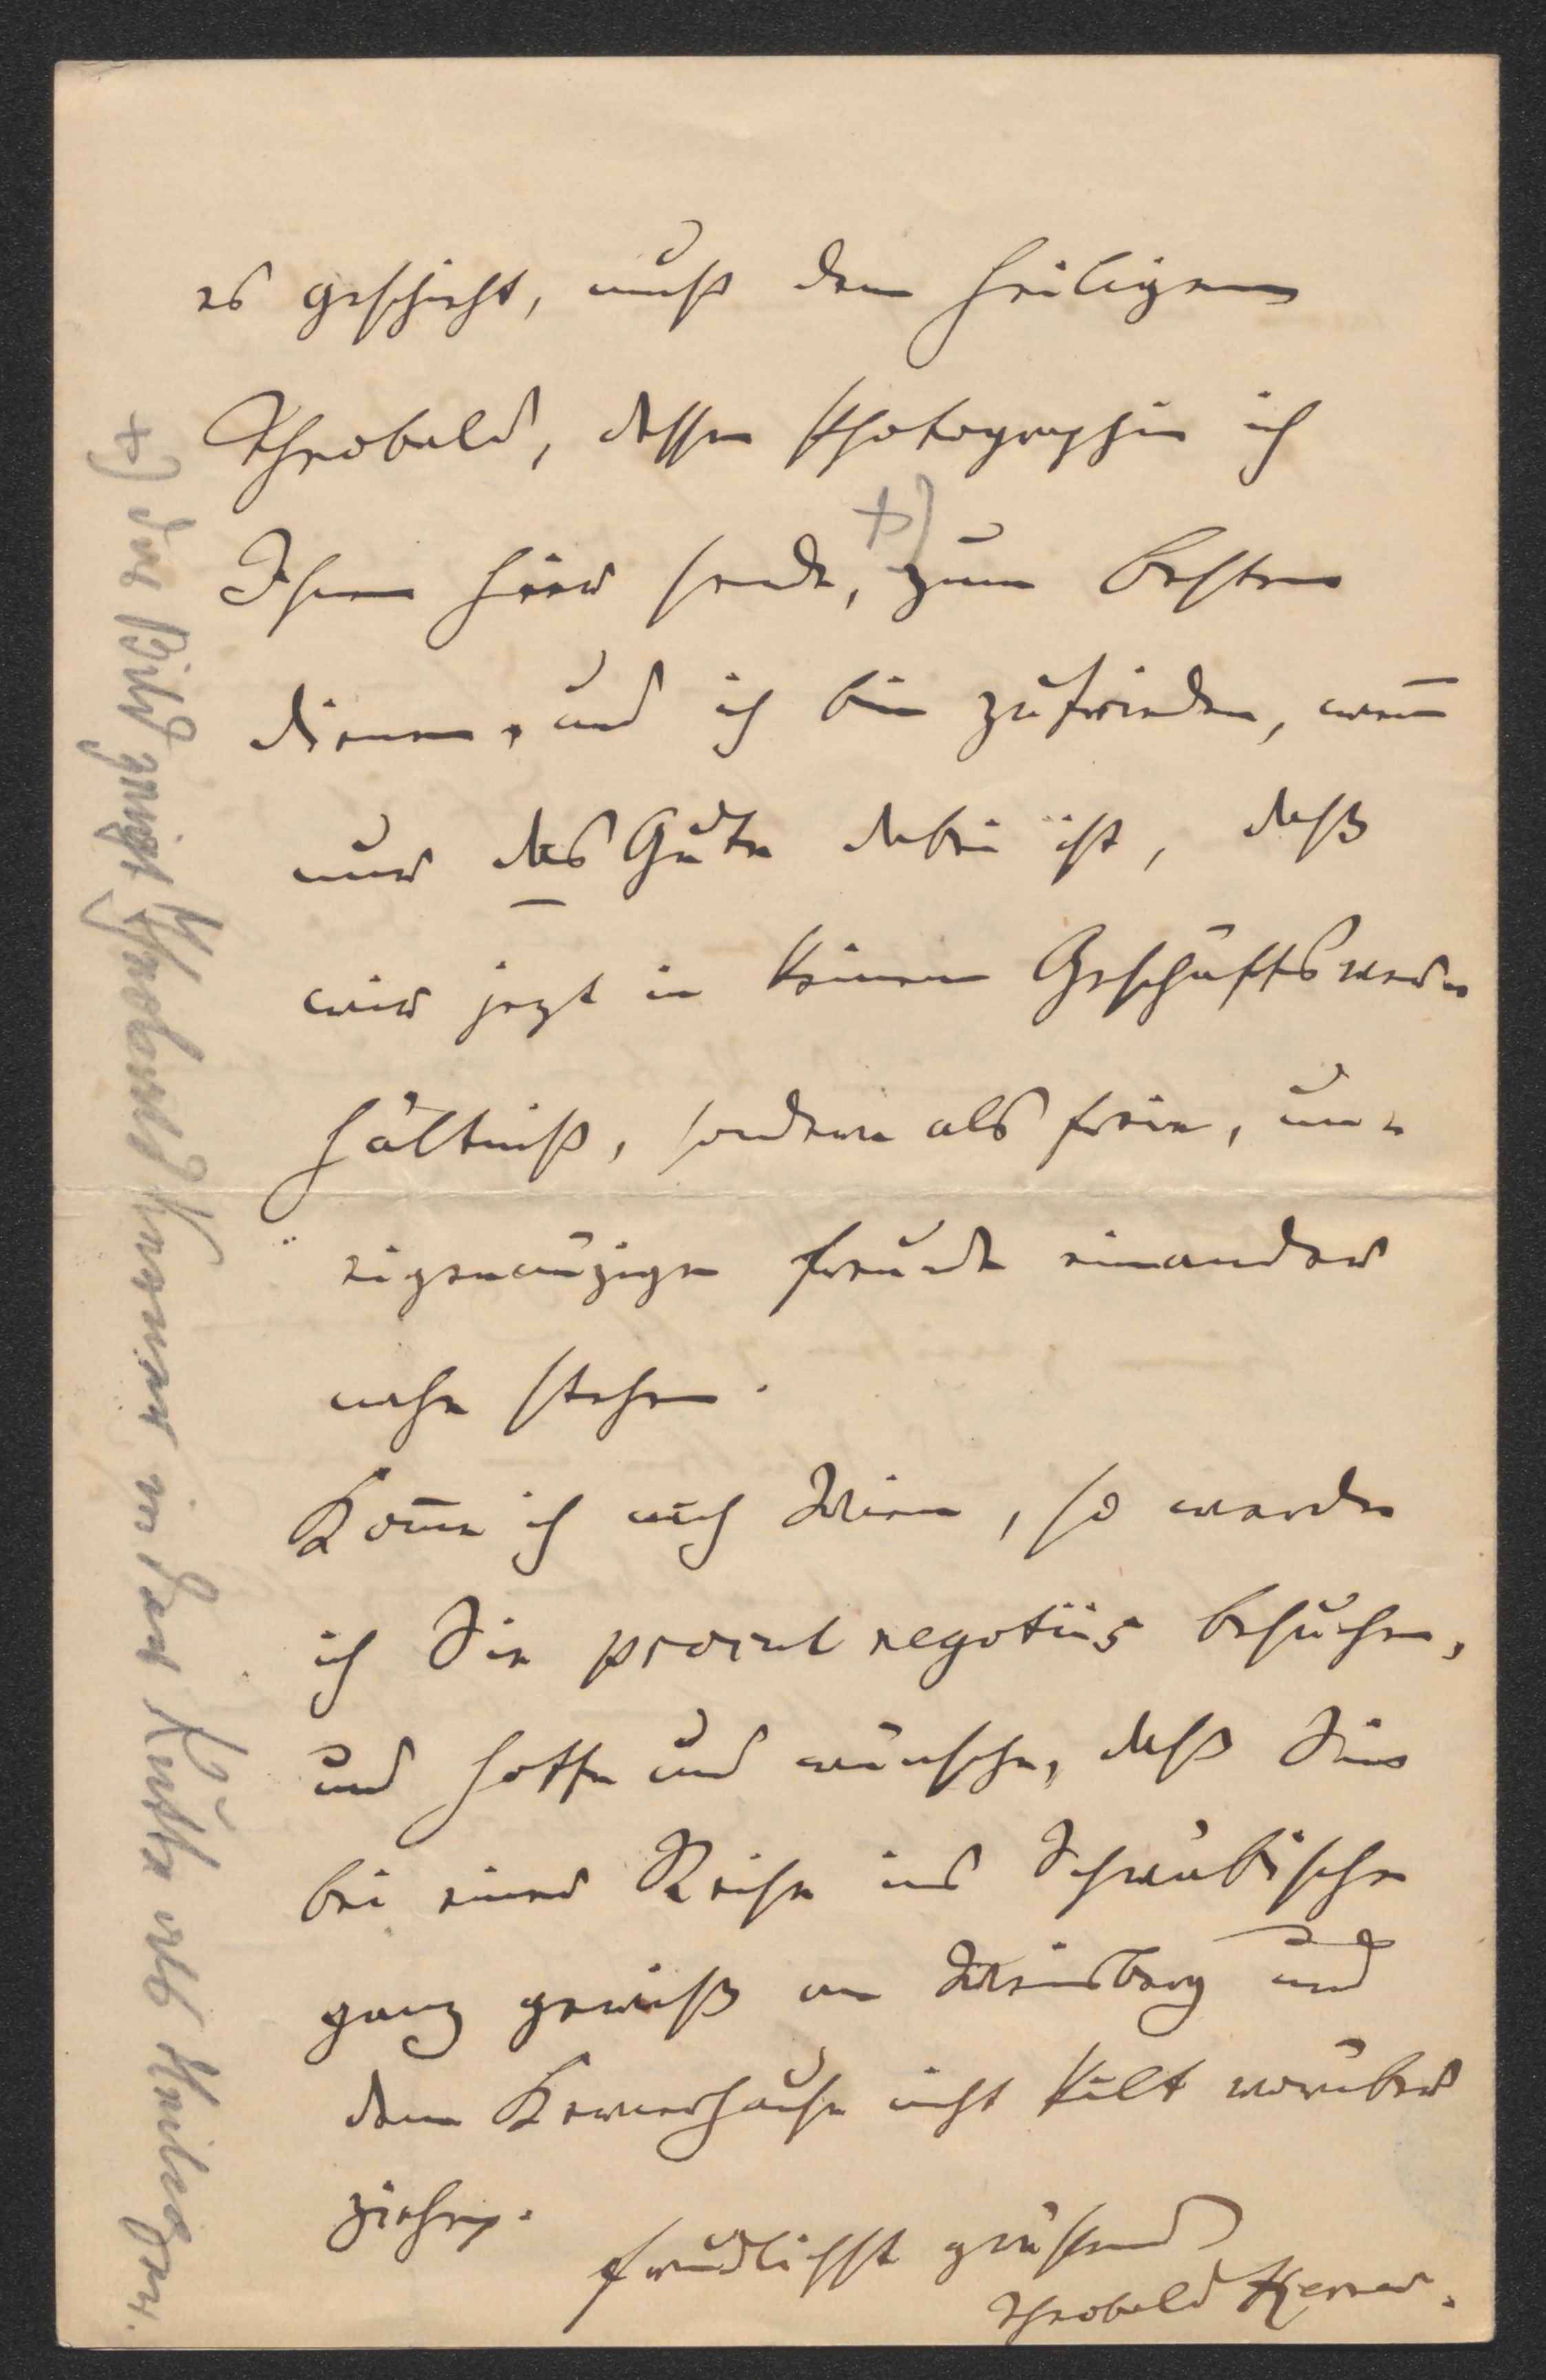 es geschieht, muß dem heiligen
Theobald, dessen Photographie ich
Ihnen hier sende, +) zum besten
dienen, und ich bin zufrieden, wen̅
nur das Gute dabei ist, daß
wir jezt in keinem Geschäftsver-
hältniß, sondern als freie, un-
eigennüzige Freunde einander
nahe stehen.
Kom̅e ich nach Wien, so werde
ich Sie procul negotiis besuchen,
und hoffe und wünsche, daß Sie
bei einer Reise ins Schwäbische
ganz gewiß an Weinsberg und
dem Kernerhause nicht kalt vorüber
ziehen.
freundlichst grüßend
Theobald Kerner.
+) das Bild zeigt Theobald Kerner in der Kutte als Heiliger.